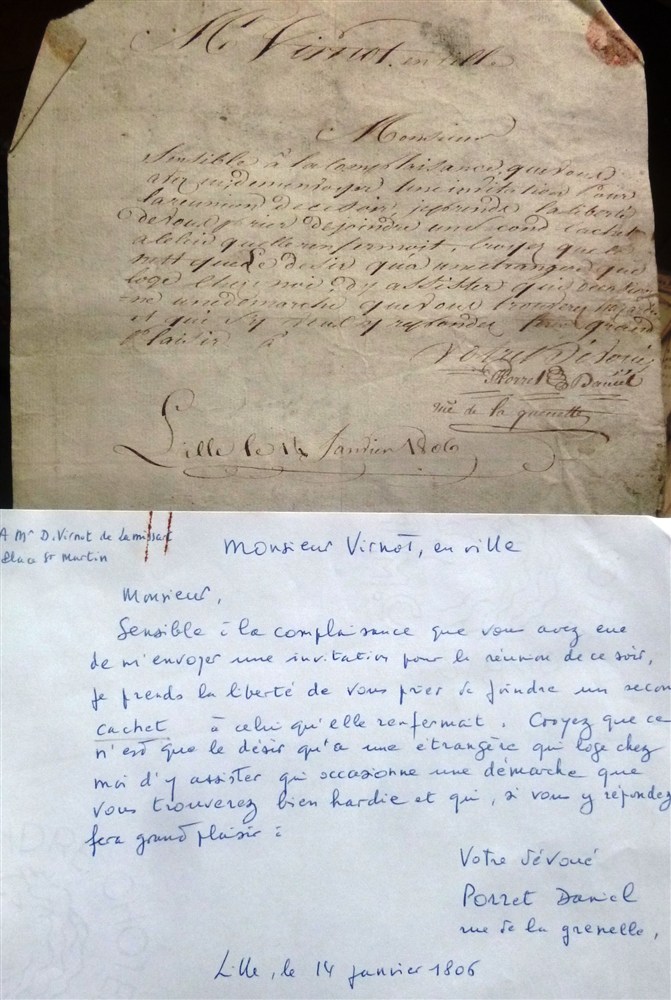 Mr Virnot en ville
Monsieur
Sensible à la complaisance que vous
avez eu de m'envoyer une invitation pour
la reunion de ce soir, je prends la liberté
de vous prier de joindre un second cachet
a celui quelle renfermoit. Croyez que ce
n'est que le desir qu'a une etrangere qui
loge chez moi d'y assister qui
une demarche que vous trouverez
et qui si y repondez grand
plaisir à
Votre Dévoué
Porret Daniel
rue de la grenelle
Lille le 14 Janvier 1806
A Mr D. Virnot de Lamissart
Place St Martin
Monsieur Virnot, en ville
Monsieur,
Sensible à la complaisance que vous avez eue
de m'envoyer une invitation pour la réunion de ce soir,
je prends la liberté de vous prier de joindre un secon
cachet à celui qu'elle renfermait. Croyez que ce
n'est que le désir qu'a une étrangère qui loge chez
moi d'y assister qui occasionne une démarche que
vous trouverez bien hardie et qui, si vous y répondez
fera grand plaisir à
Votre dévoué
Porret Daniel
rue de la grenelle,
Lille, le 14 janvier 1806